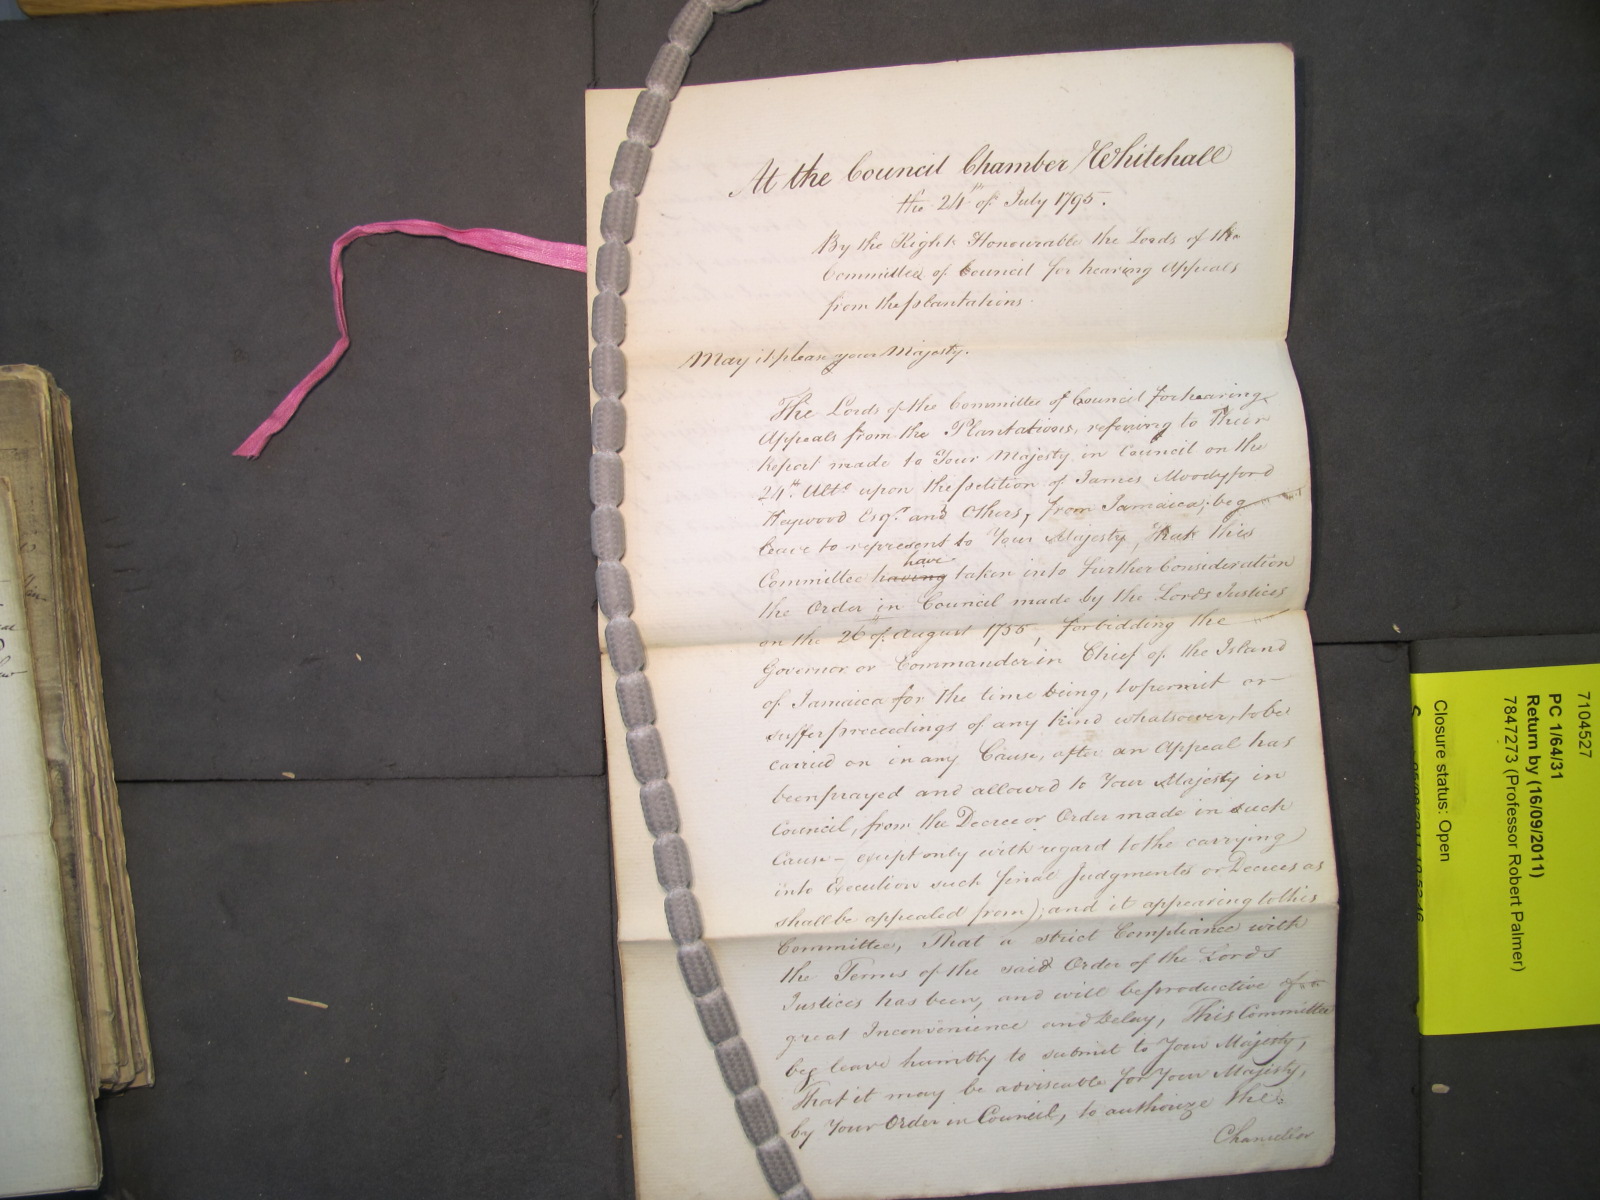 At the Council Chamber Whitehall
the 24th of July 1795.
By the Right Honourable the Lords of the
Committee of Council for hearing Appeals
from the plantations.
May it please your Majesty.
The Lords of the Committee of Council for hearing
Appeals from the Plantations, referring to Their
Report made to Your Majesty in Council on the
24th. Ulto upon the petition of James Moodyford
Heywood Esqr. and Others, from Jamaica; beg
leave to represent to Your Majesty, that this
have
Committee having taken into further Consideration
the Order in Council made by the Lords Justices
on the 26th of August 1755, forbidding the
Governor or Commander in Chief of the Island
of Jamaica for the time being, to permit or
suffer proceedings of any kind whatsoever, to be
carried on in any Cause, after an Appeal has
been prayed and allowed to Your Majesty in
Council, from the Decree or Order made in such
Cause - except only with regard to the carrying
into Execution such final Judgments or Decrees as
shall be appealed from); and it appearing to this
Committee, That a strict Compliance with
the Terms of the said Order of the Lords
Justices has been, and will be productive of
great Inconvenience and Delay, This Committee
beg leave humbly to submit to Your Majesty,
That it may be adviseable for Your Majesty,
by Your Order in Council, to authorize the
Chancellor
7104527
PC 1/64/31
Return by (16/09/2011)
7847273 (Professor Robert Palmer)
Closure status: Open